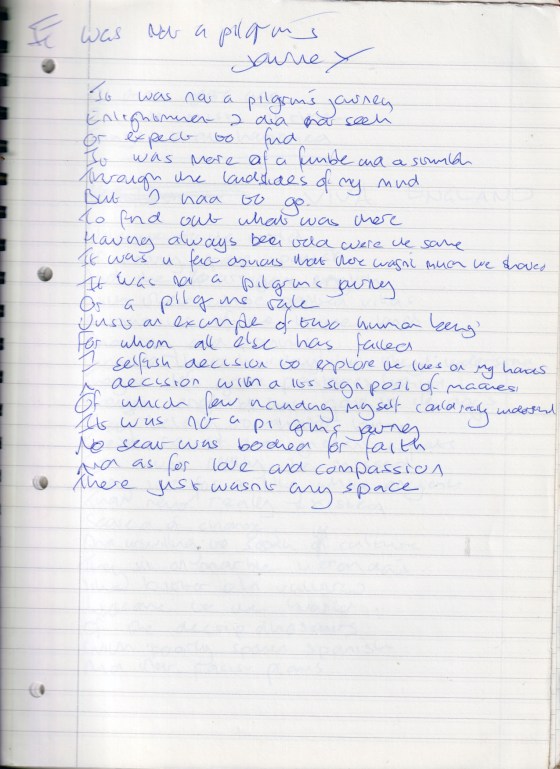 It was not a pilgrim's
journey
It was not a pilgrim's journey
Enlightenment I did not seek
Or expect to find
It was more of a fumble and a stumble
Through the landslides of my mind
But I had to go.
To find out what was there
Having always been told were the same
It was in fact obvious that there wasn't much we shared
It was not a pilgrims journey
Or a pilgrims tale
Just an example of two human beings
For whom all else has failed
A selfish decision to explore the lines on my hands
A decision with a its signpost of madness
Of which few including myself could truly understand
It was not a pilgrims journey
No seat was booked for faith
And as for love and compassion
There just wasn't any space